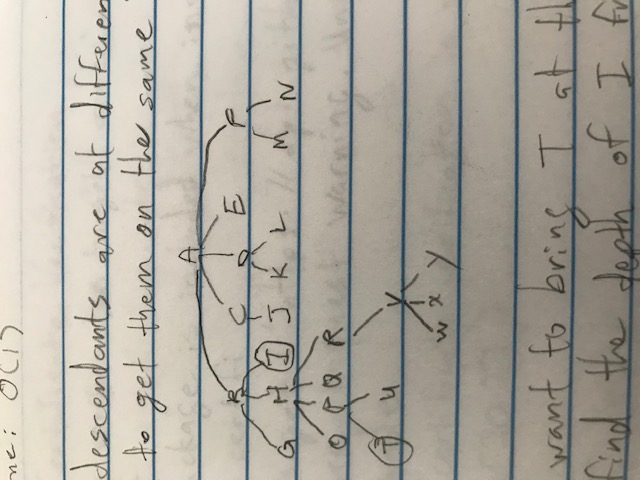 me: O(1)
descendants are at differen
to get them on the same
A
B C D E F
G H I J K L M N
O P Q R
T U V
W X Y
want to bring T at th
find the depth of I fr